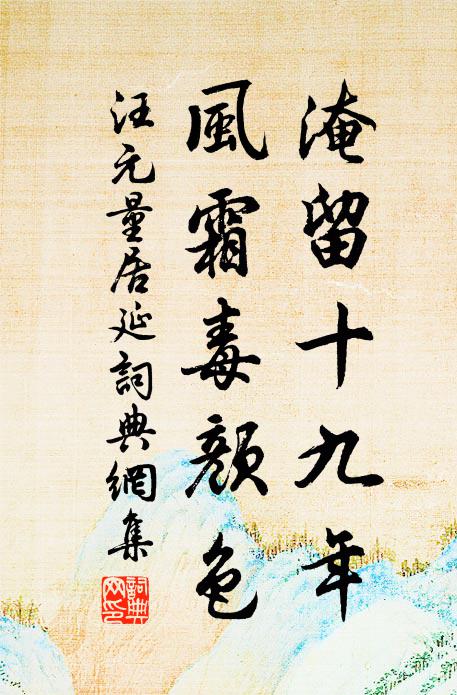 淹留十九年
風霜毒顏色
汪元量居延詞典網集
詞典